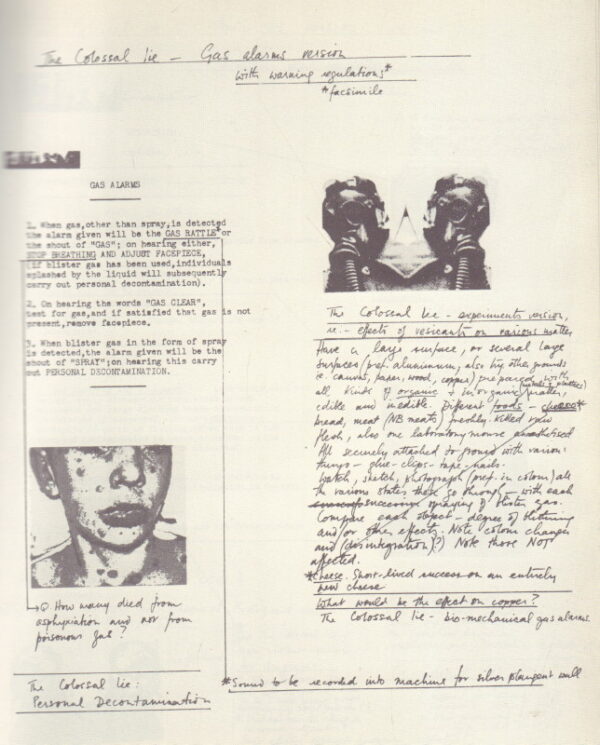 The Colossal lie - Gas alarms version
with warning regulations*
*facsimile
GAS ALARMS
1. When gas,other than spray,is detected
the alarm given will be the GAS RATTLE*or
the shout of "GAS"; on hearing either,
STOP BREATHING AND ADJUST FACEPIECE,
(if blister gas has been used,individuals
splashed by the liquid will subsequently
carry out personal decontamination).
2. On hearing the words "GAS CLEAR",
test for gas,and if satisfied that gas is not
present,remove facepiece.
3. When blister gas in the form of spray
is detected,the alarm given will be the
shout of "SPRAY";on hearing this carry
out PERSONAL DECONTAMINATION.
Q. How many died from
asphyxiation and not from
poisonous gas?
The Colossal lie:
Personal Decontamination
The Colossal lie - experiments version,
ie. - effects of vesicants on various matter,
Have a large surface, or several large
surfaces (pref. aluminium, also try other grounds
ie canvas, paper, wood, copper) prepared with
all kinds of organic & inorganic matter,
edible and inedible. Different foods - cheese*
bread, meat (NB meats) freshly killed raw
flesh, also one laboratory mouse anaesthetised
All securely attached to ground with various
things - glue - clips - tape - nails.
Watch, sketch, photograph (pref. in colour) all
the various states these go through - with each
successive spraying of blister gas.
Compare each object - degree of blistering
and/or other effects. Note colour changes
and (disintegration?) Note those NOT
affected.
*cheese. Short-lived success on an entirely
new cheese
What would be the effect on copper?
The Colossal lie - bio-mechanical gas alarms.
*Sound to be recorded into machine for silver plangent wall